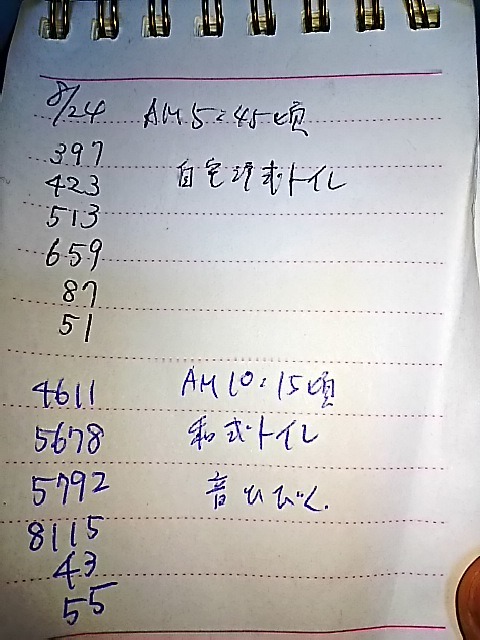 8/24 AM5:45頃
397
423 自宅洋式トイレ
513
659
87
51
4611 AM10:15頃
5678 和式トイレ
5792 音ひびく.
8115
43
55